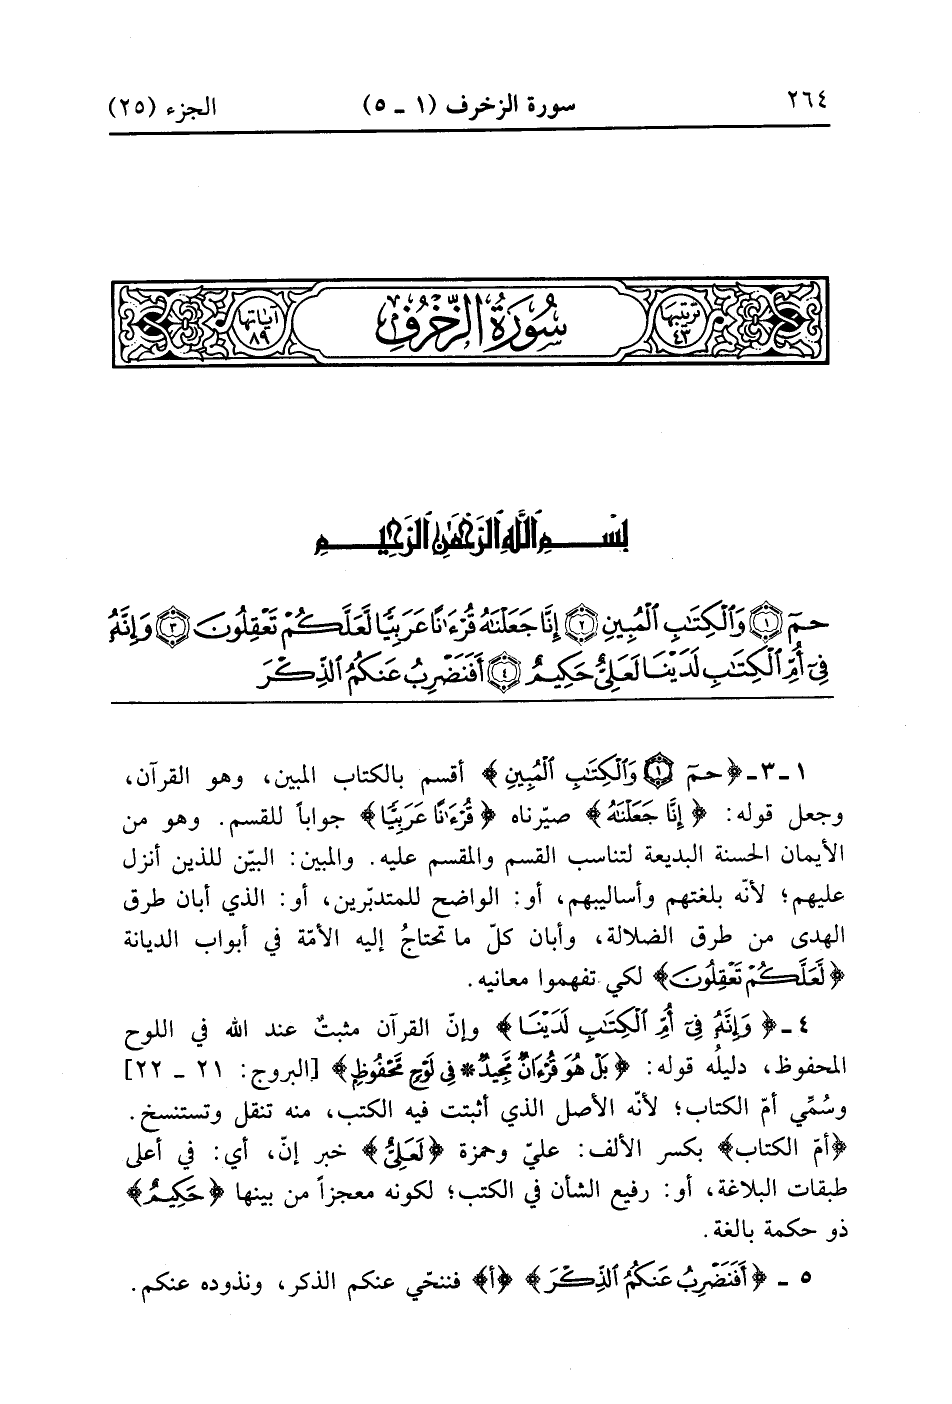 ٢٦٤ سورة الزخرف (١ ـ ٥) الجزء (٢٥)
ترتيبها ٤٣ سُورَةُ الزُّخْرُفِ آياتها ٨٩
بِسْمِ ٱللَّهِ ٱلرَّحْمَٰنِ ٱلرَّحِيمِ
حمٓ ١ وَٱلْكِتَٰبِ ٱلْمُبِينِ ٢ إِنَّا جَعَلْنَٰهُ قُرْءَٰنًا عَرَبِيًّا لَّعَلَّكُمْ تَعْقِلُونَ ٣ وَإِنَّهُۥ
فِىٓ أُمِّ ٱلْكِتَٰبِ لَدَيْنَا لَعَلِىٌّ حَكِيمٌ ٤ أَفَنَضْرِبُ عَنكُمُ ٱلذِّكْرَ
١ ـ ٣ ـ ﴿حمٓ ١ وَٱلْكِتَٰبِ ٱلْمُبِينِ﴾ أقسم بالكتاب المبين، وهو القرآن،
وجعل قوله: ﴿إِنَّا جَعَلْنَٰهُ﴾ صيّرناه ﴿قُرْءَٰنًا عَرَبِيًّا﴾ جواباً للقسم. وهو من
الأيمان الحسنة البديعة لتناسب القسم والمقسم عليه. والمبين: البيّن للذين أنزل
عليهم؛ لأنّه بلغتهم وأساليبهم، أو: الواضح للمتدبّرين، أو: الذي أبان طرق
الهدى من طرق الضلالة، وأبان كلّ ما تحتاجُ إليه الأمّة في أبواب الديانة
﴿لَّعَلَّكُمْ تَعْقِلُونَ﴾ لكي تفهموا معانيه.
٤ ـ ﴿وَإِنَّهُۥ فِىٓ أُمِّ ٱلْكِتَٰبِ لَدَيْنَا﴾ وإنّ القرآن مثبتٌ عند الله في اللوح
المحفوظ، دليلُه قوله: ﴿بَلْ هُوَ قُرْءَانٌ مَّجِيدٌ * فِى لَوْحٍ مَّحْفُوظٍ﴾ [البروج: ٢١ ـ ٢٢]
وسُمِّي أمّ الكتاب؛ لأنّه الأصل الذي أثبتت فيه الكتب، منه تنقل وتستنسخ.
﴿أمّ الكتاب﴾ بكسر الألف: عليّ وحمزة ﴿لَعَلِىٌّ﴾ خبر إنّ، أي: في أعلى
طبقات البلاغة، أو: رفيع الشأن في الكتب؛ لكونه معجزاً من بينها ﴿حَكِيمٌ﴾
ذو حكمة بالغة.
٥ ـ ﴿أَفَنَضْرِبُ عَنكُمُ ٱلذِّكْرَ﴾ ﴿أ﴾ فننحّي عنكم الذكر، ونذوده عنكم.